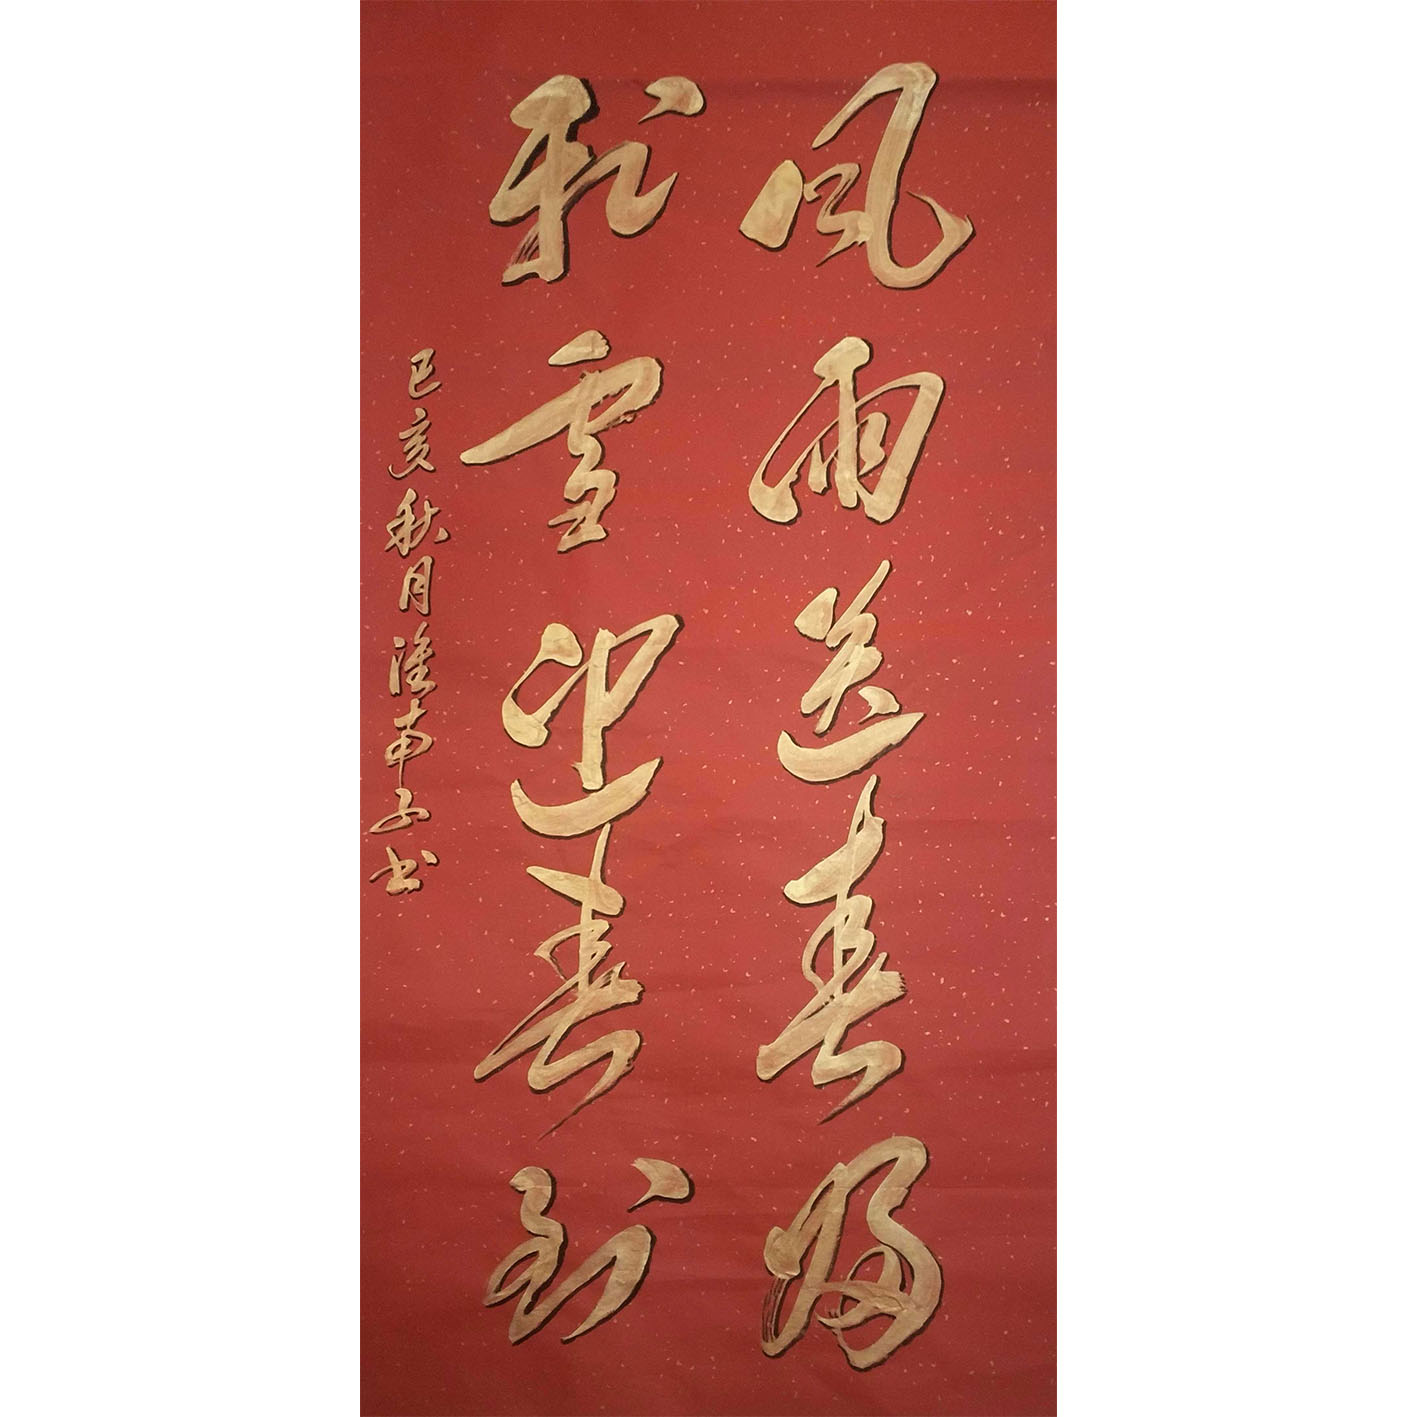 风雨送春归
飛雪迎春到
己亥秋月淮南子书